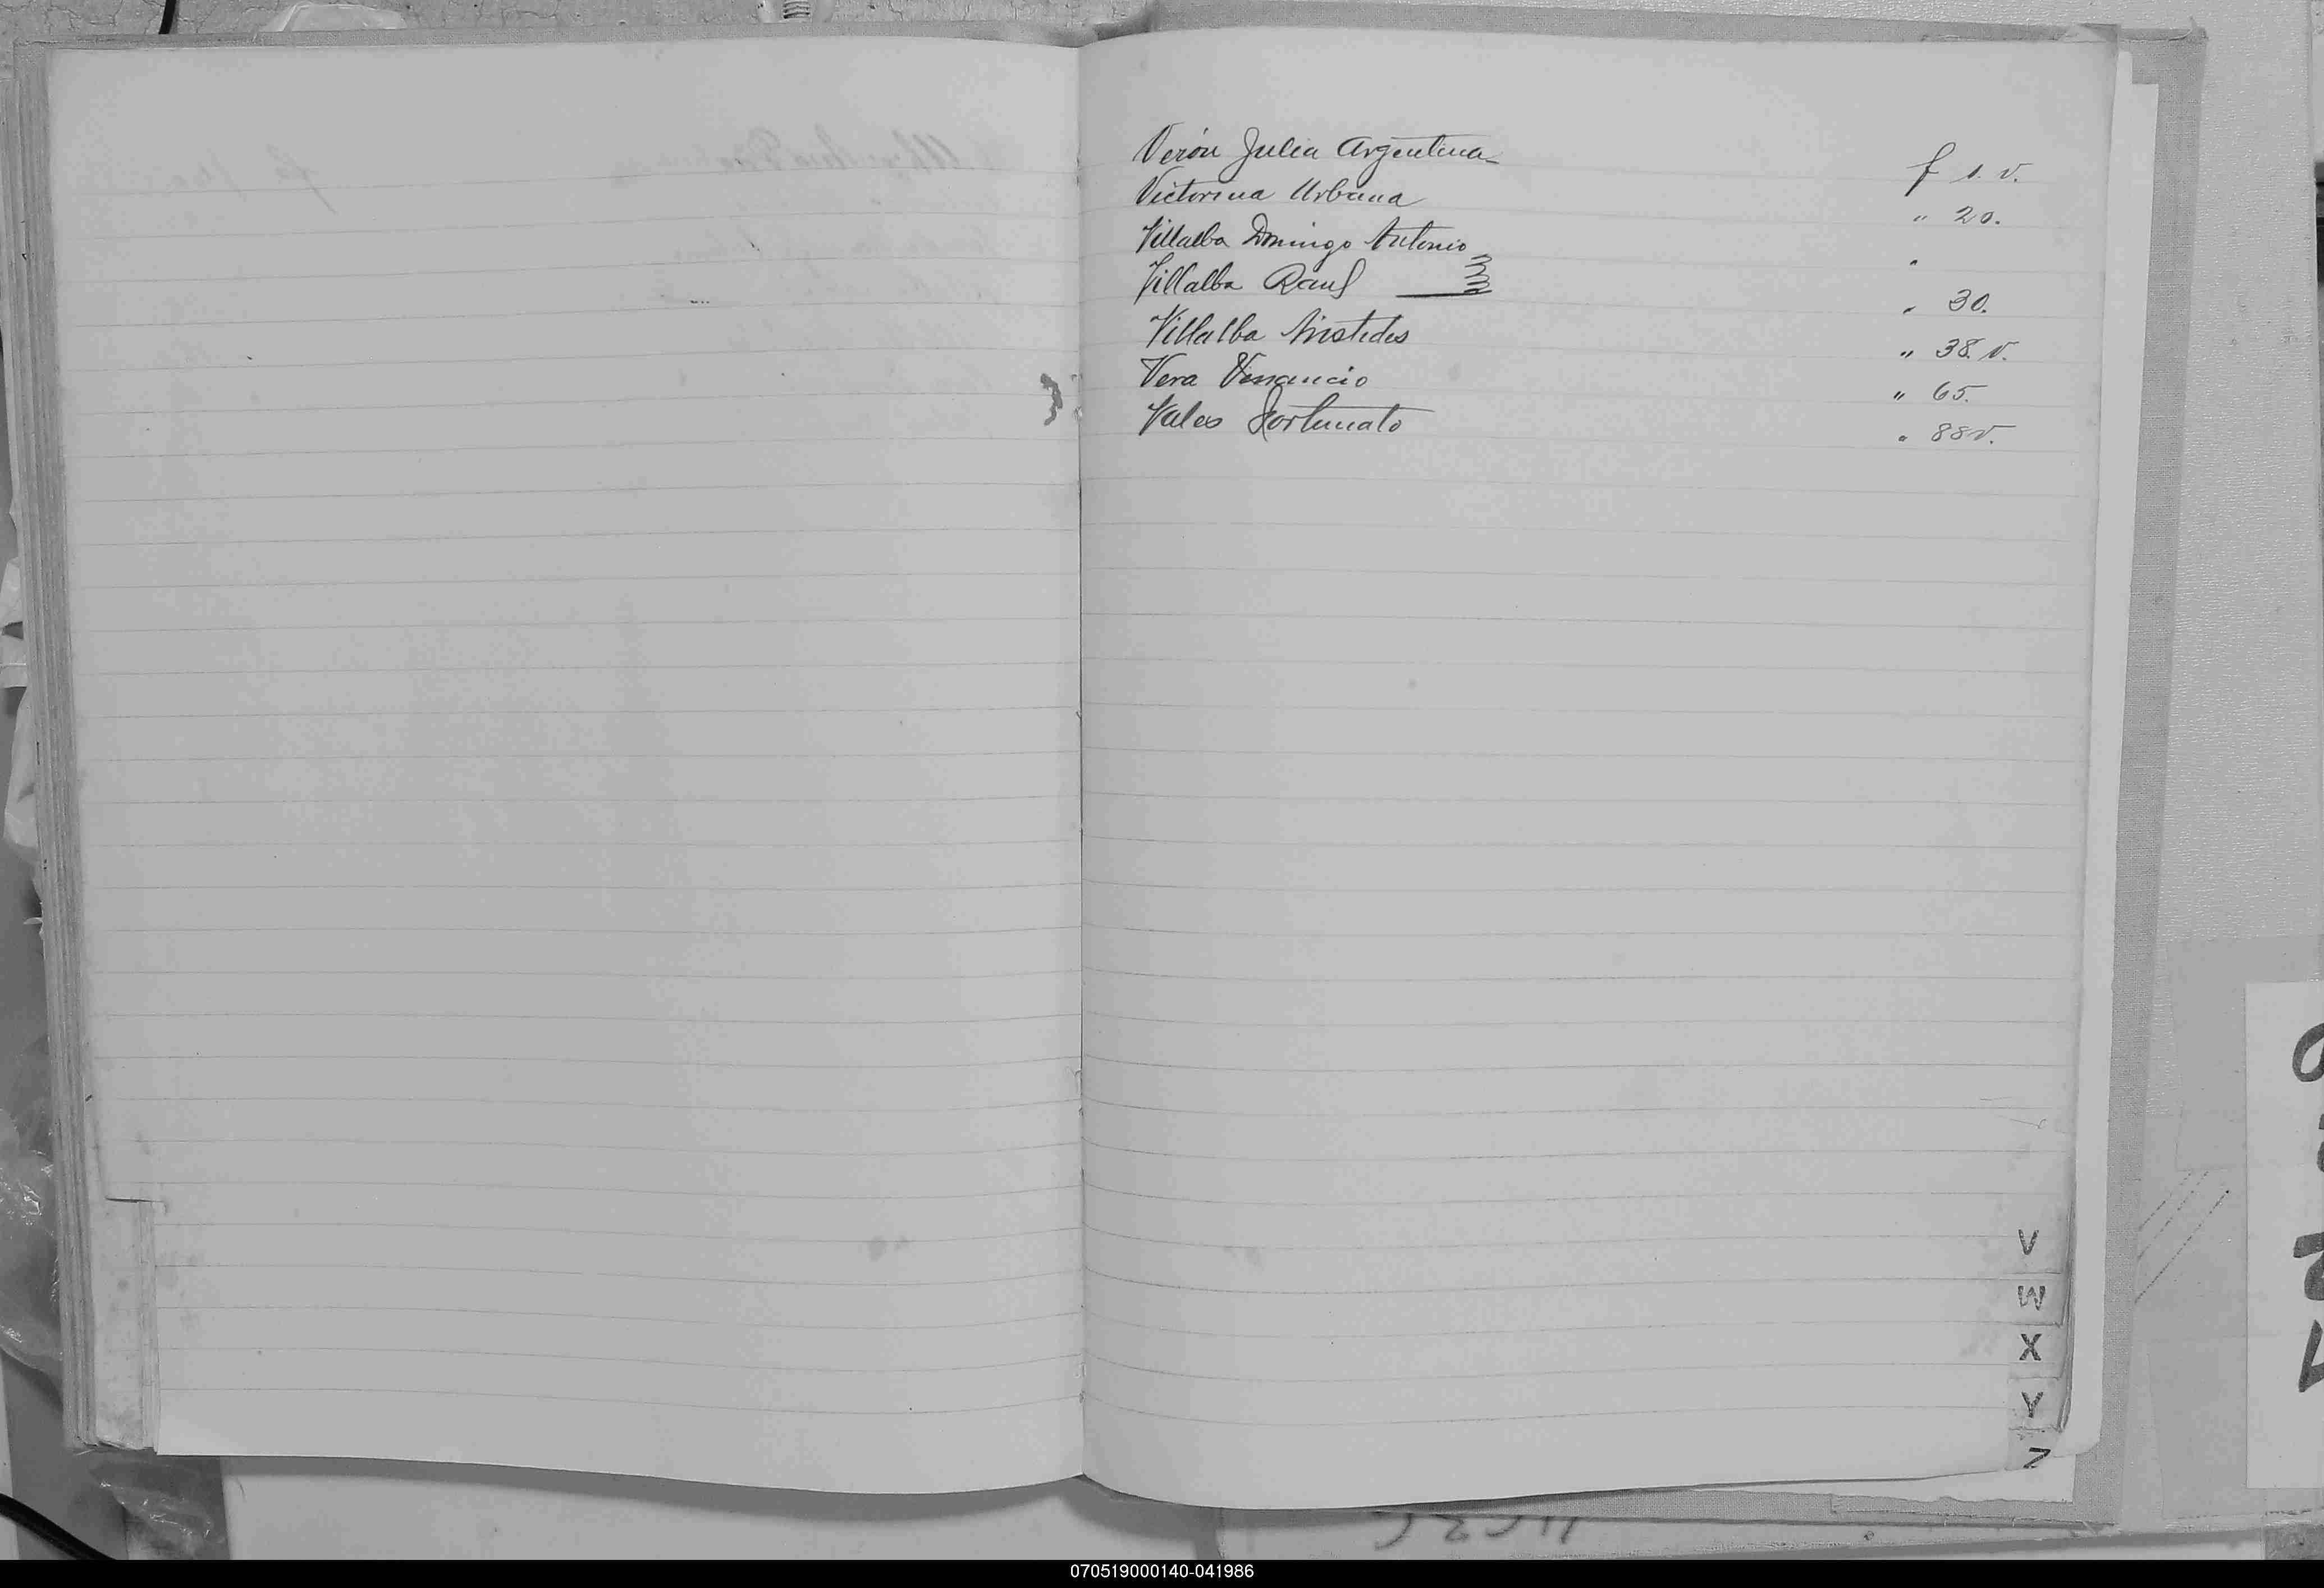 Verón Julia Argentina f 1. v.
Victorina Urbana " 20.
Villalba Domingo Antonio "
Villalba Raul " 30.
Villalba Aristides " 38. v.
Vera Venancio " 65.
Vales Fortunato " 88v.
V
W
X
Y
Z
070519000140-041986